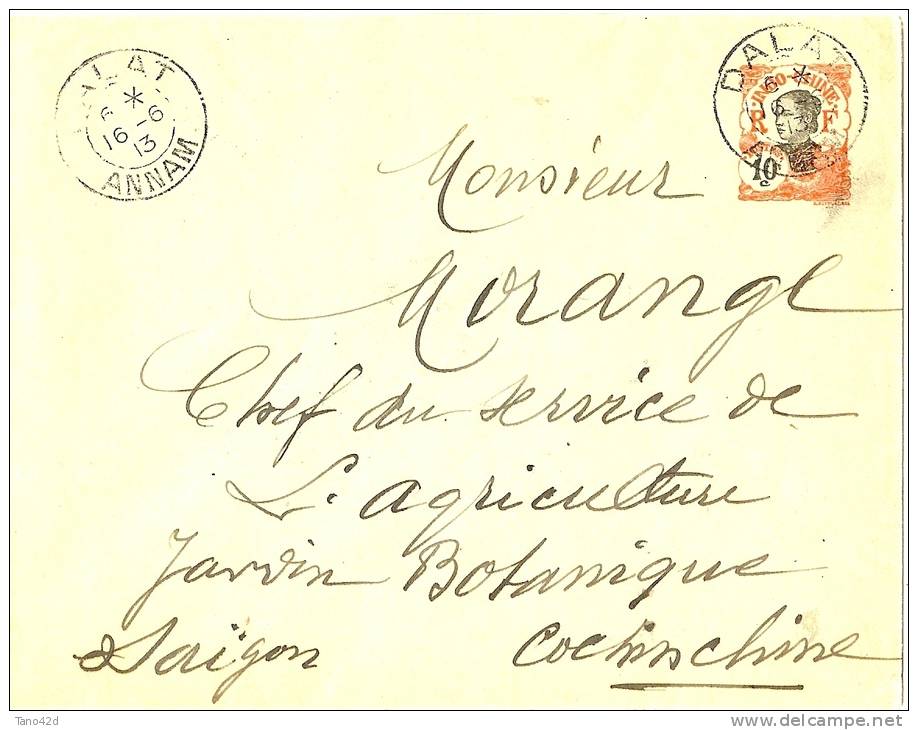 DALAT
6 *
16 -6
13
ANNAM
DALAT
6 *
16
13
INDO-CHINE
R F
10
c
Monsieur
Morange
Chef du service de
L'agriculture
Jardin Botanique
Saïgon Cochinchine
Tano42d
www.delcampe.net